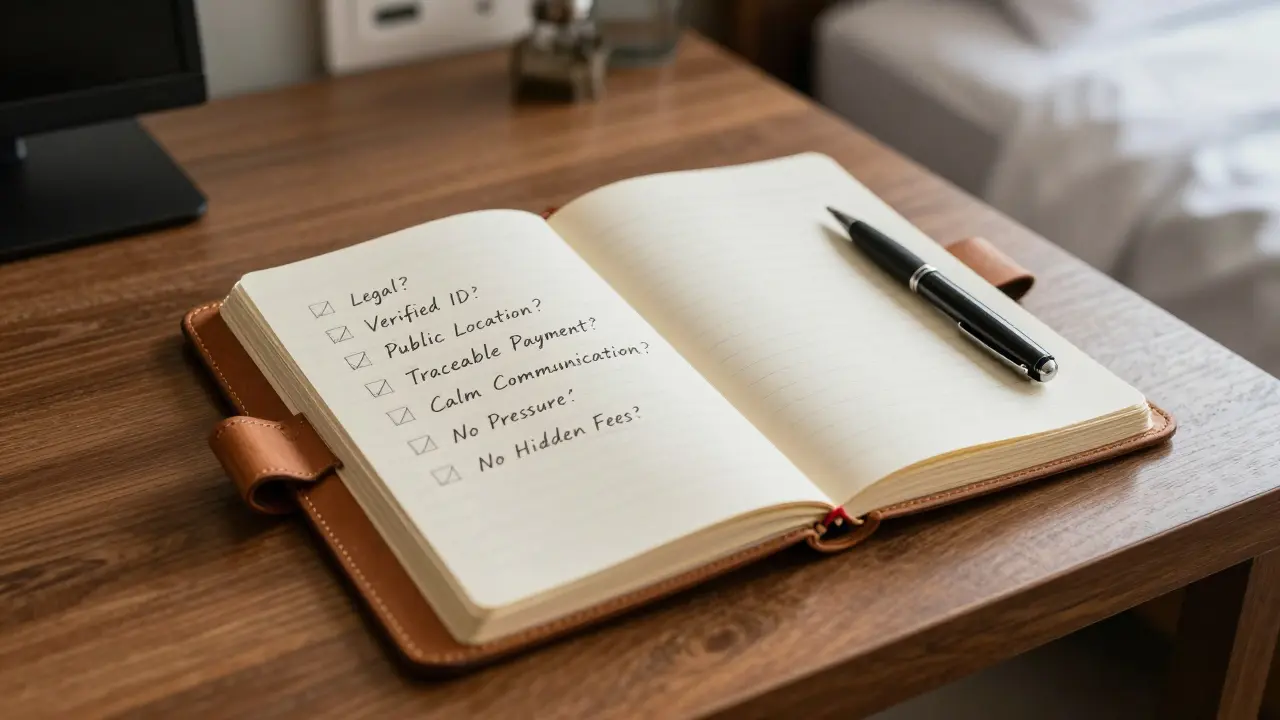 Legal?
Verified ID?
Public Location?
Traceable Payment?
Calm Communication?
No Pressure?
No Hidden Fees?